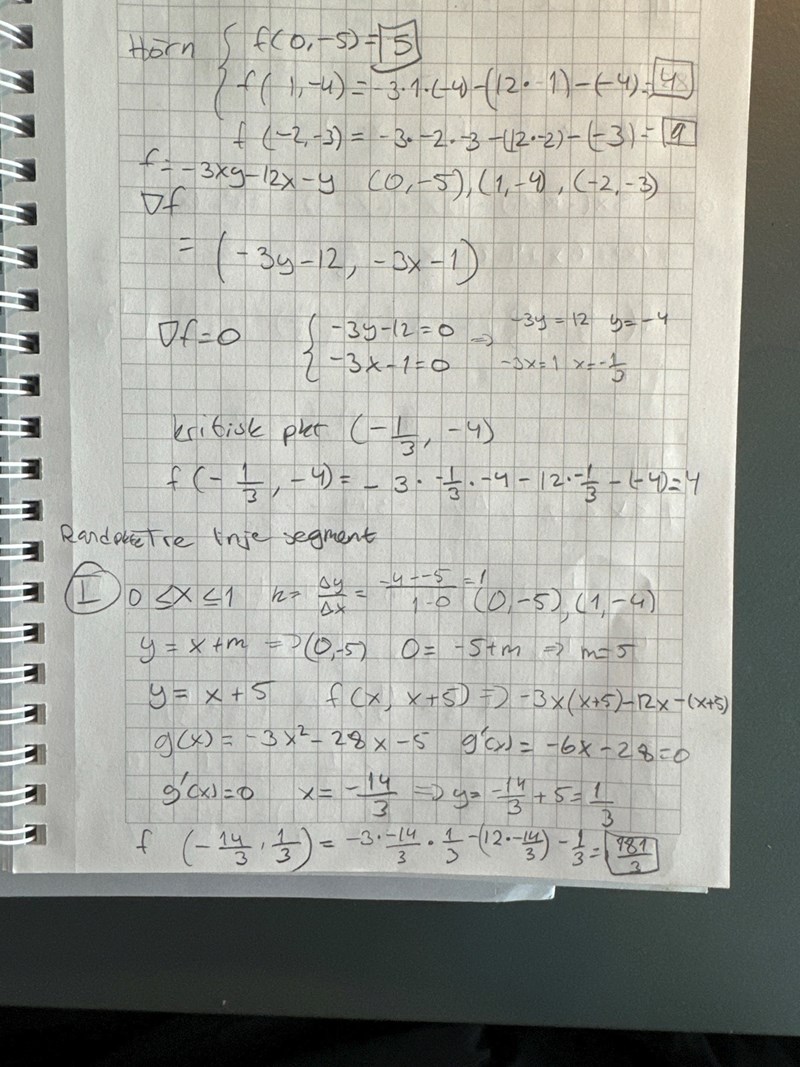 Hörn { f(0,-5) = 5
f(1,-4) = -3·1·(-4)-(12·-1)-(-4) = 4
f(-2,-3) = -3·-2·-3-(12·-2)-(-3) = 9
f = -3xy-12x-y (0,-5), (1,-4), (-2,-3)
∇f
= (-3y-12, -3x-1)
∇f=0 { -3y-12=0 => -3y=12 y=-4
-3x-1=0 -3x=1 x=-1/3
kritisk pkt (-1/3, -4)
f(-1/3, -4) = -3·-1/3·-4-12·-1/3-(-4)=4
Tre linje segment
I 0≤x≤1 k= Δy/Δx = -4--5/1-0 =1 (0,-5), (1,-4)
y = x+m => (0,-5) 0= -5+m => m=5
y = x+5 f(x, x+5) => -3x(x+5)-12x-(x+5)
g(x) = -3x²-28x-5 g'(x) = -6x-28=0
g'(x)=0 x= -14/3 => y= -14/3 + 5 = 1/3
f (-14/3, 1/3) = -3·-14/3·1/3-(12·-14/3)-1/3= 181/3